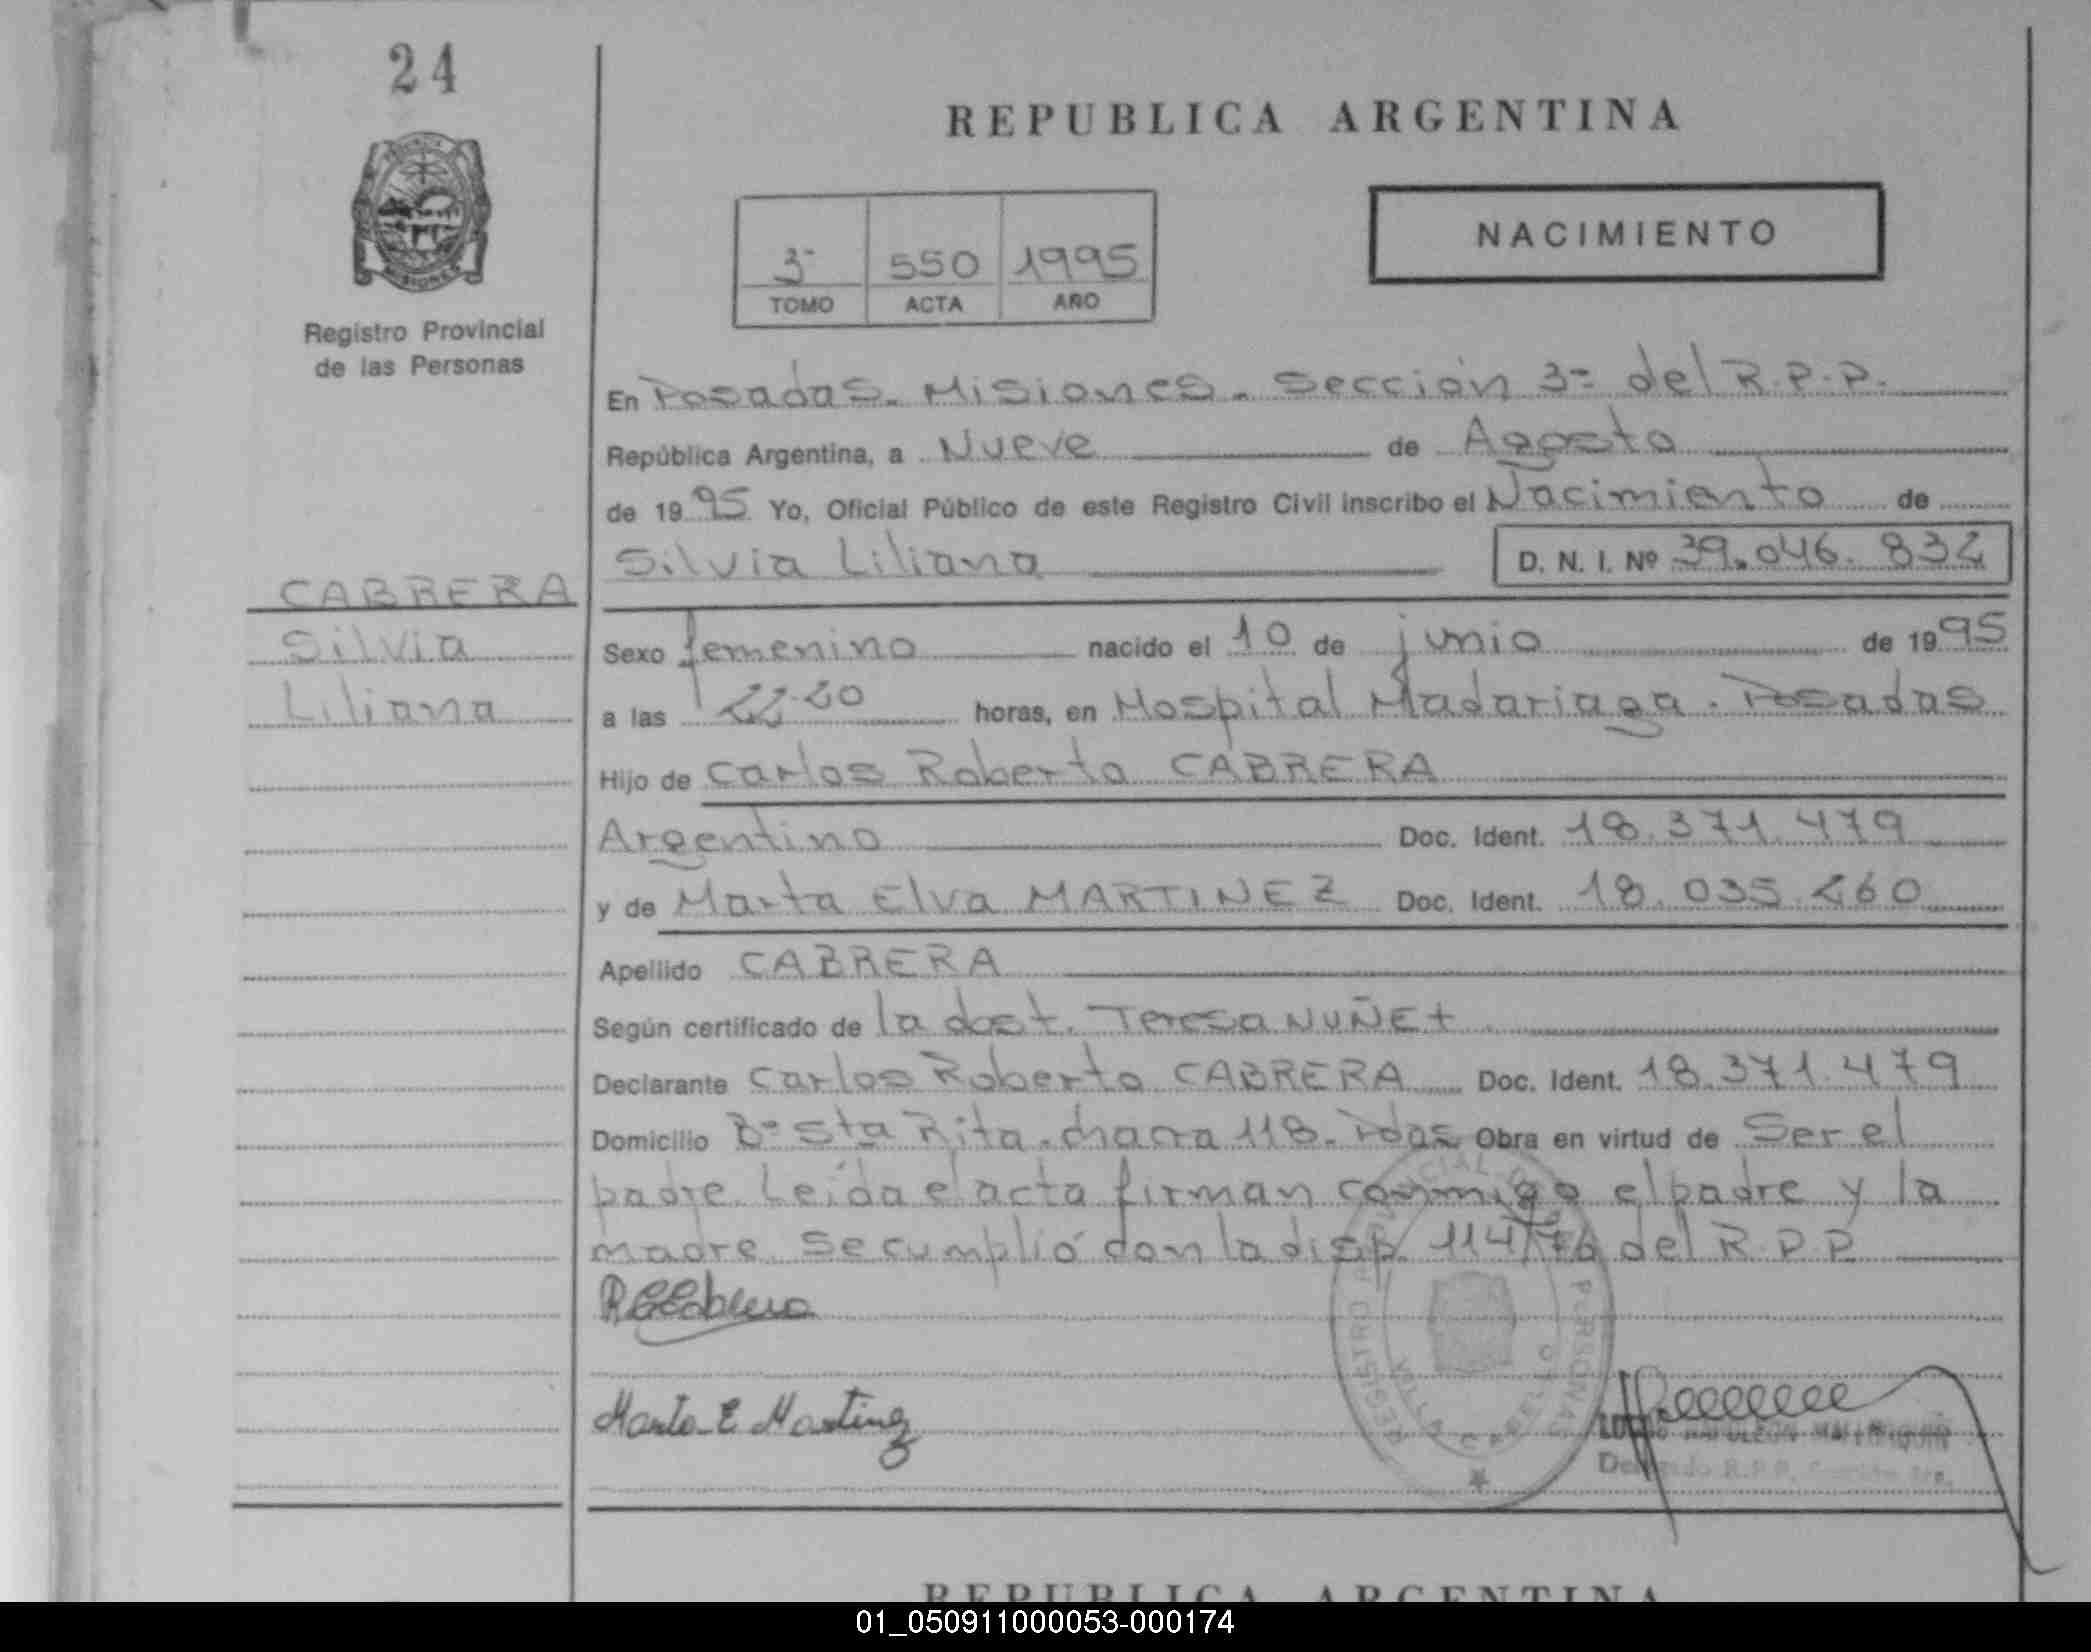 24
REPUBLICA ARGENTINA
NACIMIENTO
3ª 550 1995
TOMO ACTA AÑO
Registro Provincial
de las Personas
En Posadas. Misiones. Sección 3ª del R.P.P.
República Argentina, a Nueve de Agosto
de 1995 Yo, Oficial Público de este Registro Civil inscribo el Nacimiento de
Silvia Liliana D. N. I. Nº 39.046.832
CABRERA
Silvia
Liliana
Sexo femenino nacido el 10 de junio de 1995
a las 22.20 horas, en Hospital Madariaga. Posadas
Hijo de Carlos Roberto CABRERA
Argentino Doc. Ident. 18.371.479
y de Marta Elva MARTINEZ Doc. Ident. 18.035.260
Apellido CABRERA
Según certificado de la dost. Teresa NUÑEZ
Declarante Carlos Roberto CABRERA Doc. Ident. 18.371.479
Domicilio Bº Sta Rita. chacra 118. Pdas Obra en virtud de Ser el
padre. Leída el acta firman conmigo el padre y la
madre. Se cumplió con la disp. 114/76 del R.P.P.
Marta E Martinez
REGISTRO PERSONAS
VILLA CABELLO
R.P.P.
REPUBLICA ARGENTINA
01_050911000053-000174